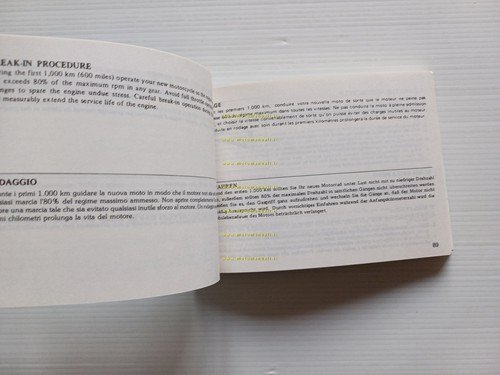 EAK-IN PROCEDURE
ring the first 1,000 km (600 miles) operate your new motorcycle so the
exceeds 80% of the maximum rpm in any gear. Avoid full throttle
nges to spare the engine undue stress. Careful break-in operation
measurably extend the service life of the engine.
DAGGIO
ante i primi 1.000 km guidare la nuova moto in modo che il motore non
siasi marcia l'80% del regime massimo ammesso. Non aprire completamente
ore una marcia tale che sia evitato qualsiasi inutile sforzo al motore.
mi chilometri prolunga la vita del motore.
GE
les premiers 1.000 km, conduire votre nouvelle moto de sorte que le moteur ne peine pas
80% du régime maximum dans toutes les vitesses. Ne pas conduire la moto à pleine admission
et choisir la vitesse convenablement de sorte qu'on puisse éviter des charges inutiles au moteur.
en rodage avec soin durant les premiers kilomètres prolongera la durée de service du moteur.
www.motomanuali.it
FAHREN
end den ersten 1.000 km sollten Sie Ihr neues Motorrad unter Last nicht mit zu niedriger Drehzahl
außerdem sollten 80% der maximalen Drehzahl in sämtlichen Gängen nicht überschritten werden
Sie es, den Gasgriff ganz aufzudrehen und wechseln Sie die Gänge so, daß der Motor nicht
beansprucht wird. Durch vorsichtiges Einfahren während der Anfangskilometerzahl wird die
Lebensdauer des Motors beträchtlich verlängert.
89